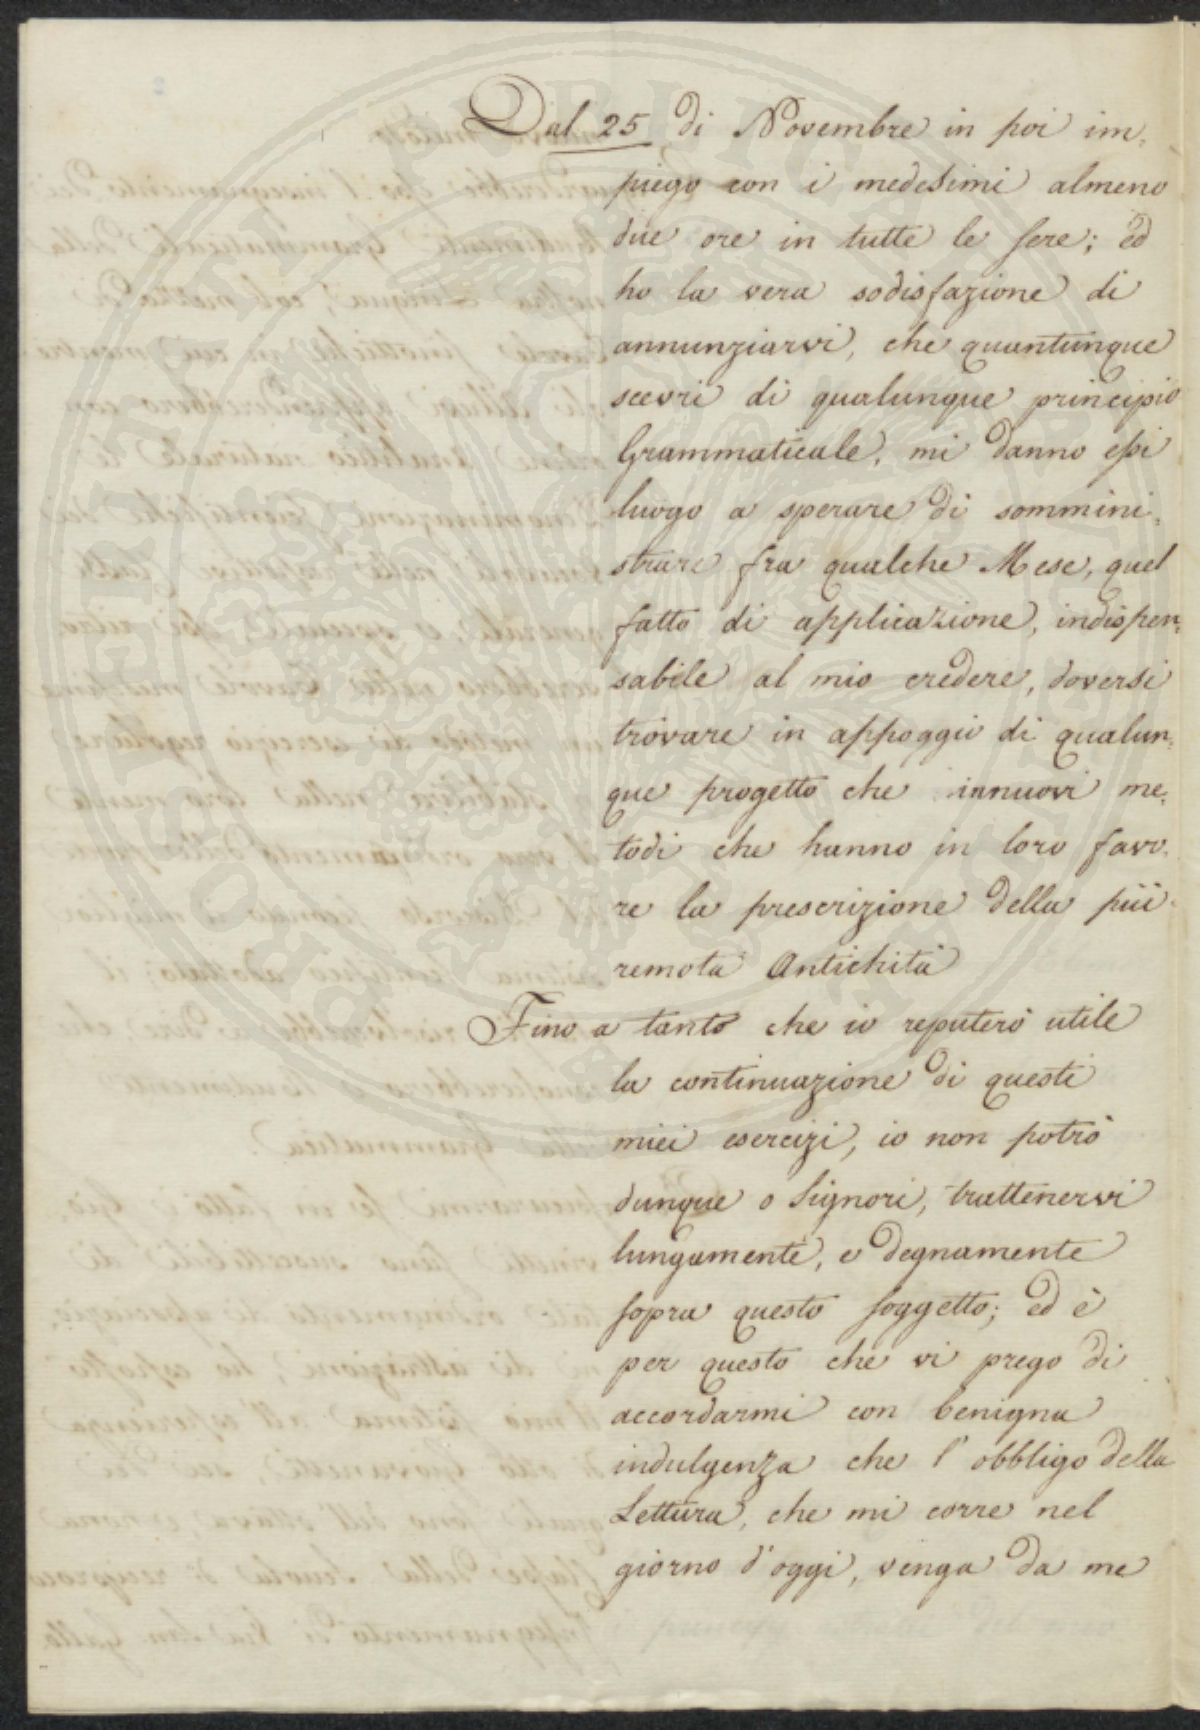 Dal 25 di Novembre in poi im-
piego con i medesimi almeno
due ore in tutte le sere; ed
ho la vera sodisfazione di
annunziarvi, che quantunque
scevri di qualunque principio
Grammaticale, mi danno essi
luogo a sperare di sommini-
strare fra qualche Mese, quel
fatto di applicazione, indispen-
sabile al mio credere, doversi
trovare in appoggio di qualun-
que progetto che innuovi me-
todi che hanno in loro favo-
re la prescrizione della più
remota Antichità
Fino a tanto che io reputerò utile
la continuazione di questi
miei esercizi, io non potrò
dunque o Signori, trattenervi
lungamente, e degnamente
sopra questo soggetto; ed è
per questo che vi prego di
accordarmi con benigna
indulgenza che l'obbligo della
Lettura, che mi corre nel
giorno d'oggi, venga da me